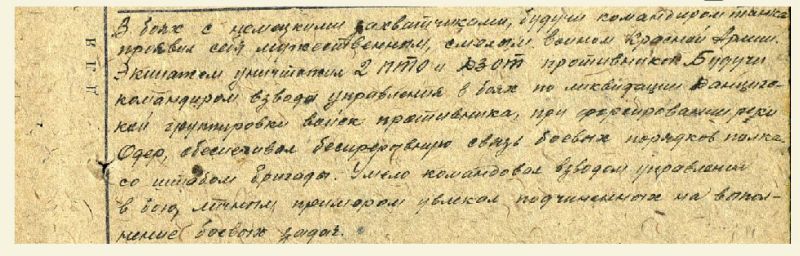 В боях с немецкими захватчиками, будучи командиром танка
проявил себя мужественным, смелым воином Красной Армии.
Экипажем уничтожил 2 ПТО и ДЗОТ противника. Будучи
командиром взвода управления в боях по ликвидации Данциг-
кой группировки войск противника, при форсировании реки
Одер, обеспечивал бесперебойную связь боевых порядков полка
со штабом Бригады. Умело командовал взводом управления
в бою, личным примером увлекал подчиненных на выпол-
нение боевых задач.